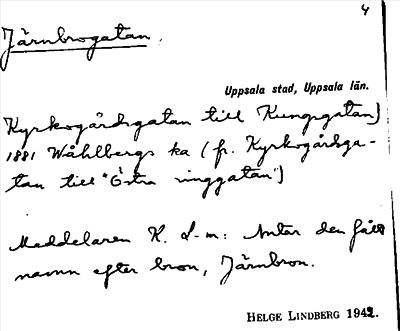 4
Järnbrogatan.
Uppsala stad, Uppsala län.
Kyrkogårdsgatan till Kungsgatan)
1881 Wåhlbergs ka (fr. Kyrkogårdsga-
tan till "Östra ringgatan")
Meddelaren K. L-m: Antar den fått
namn efter bron, Järnbron.
HELGE LINDBERG 1942.